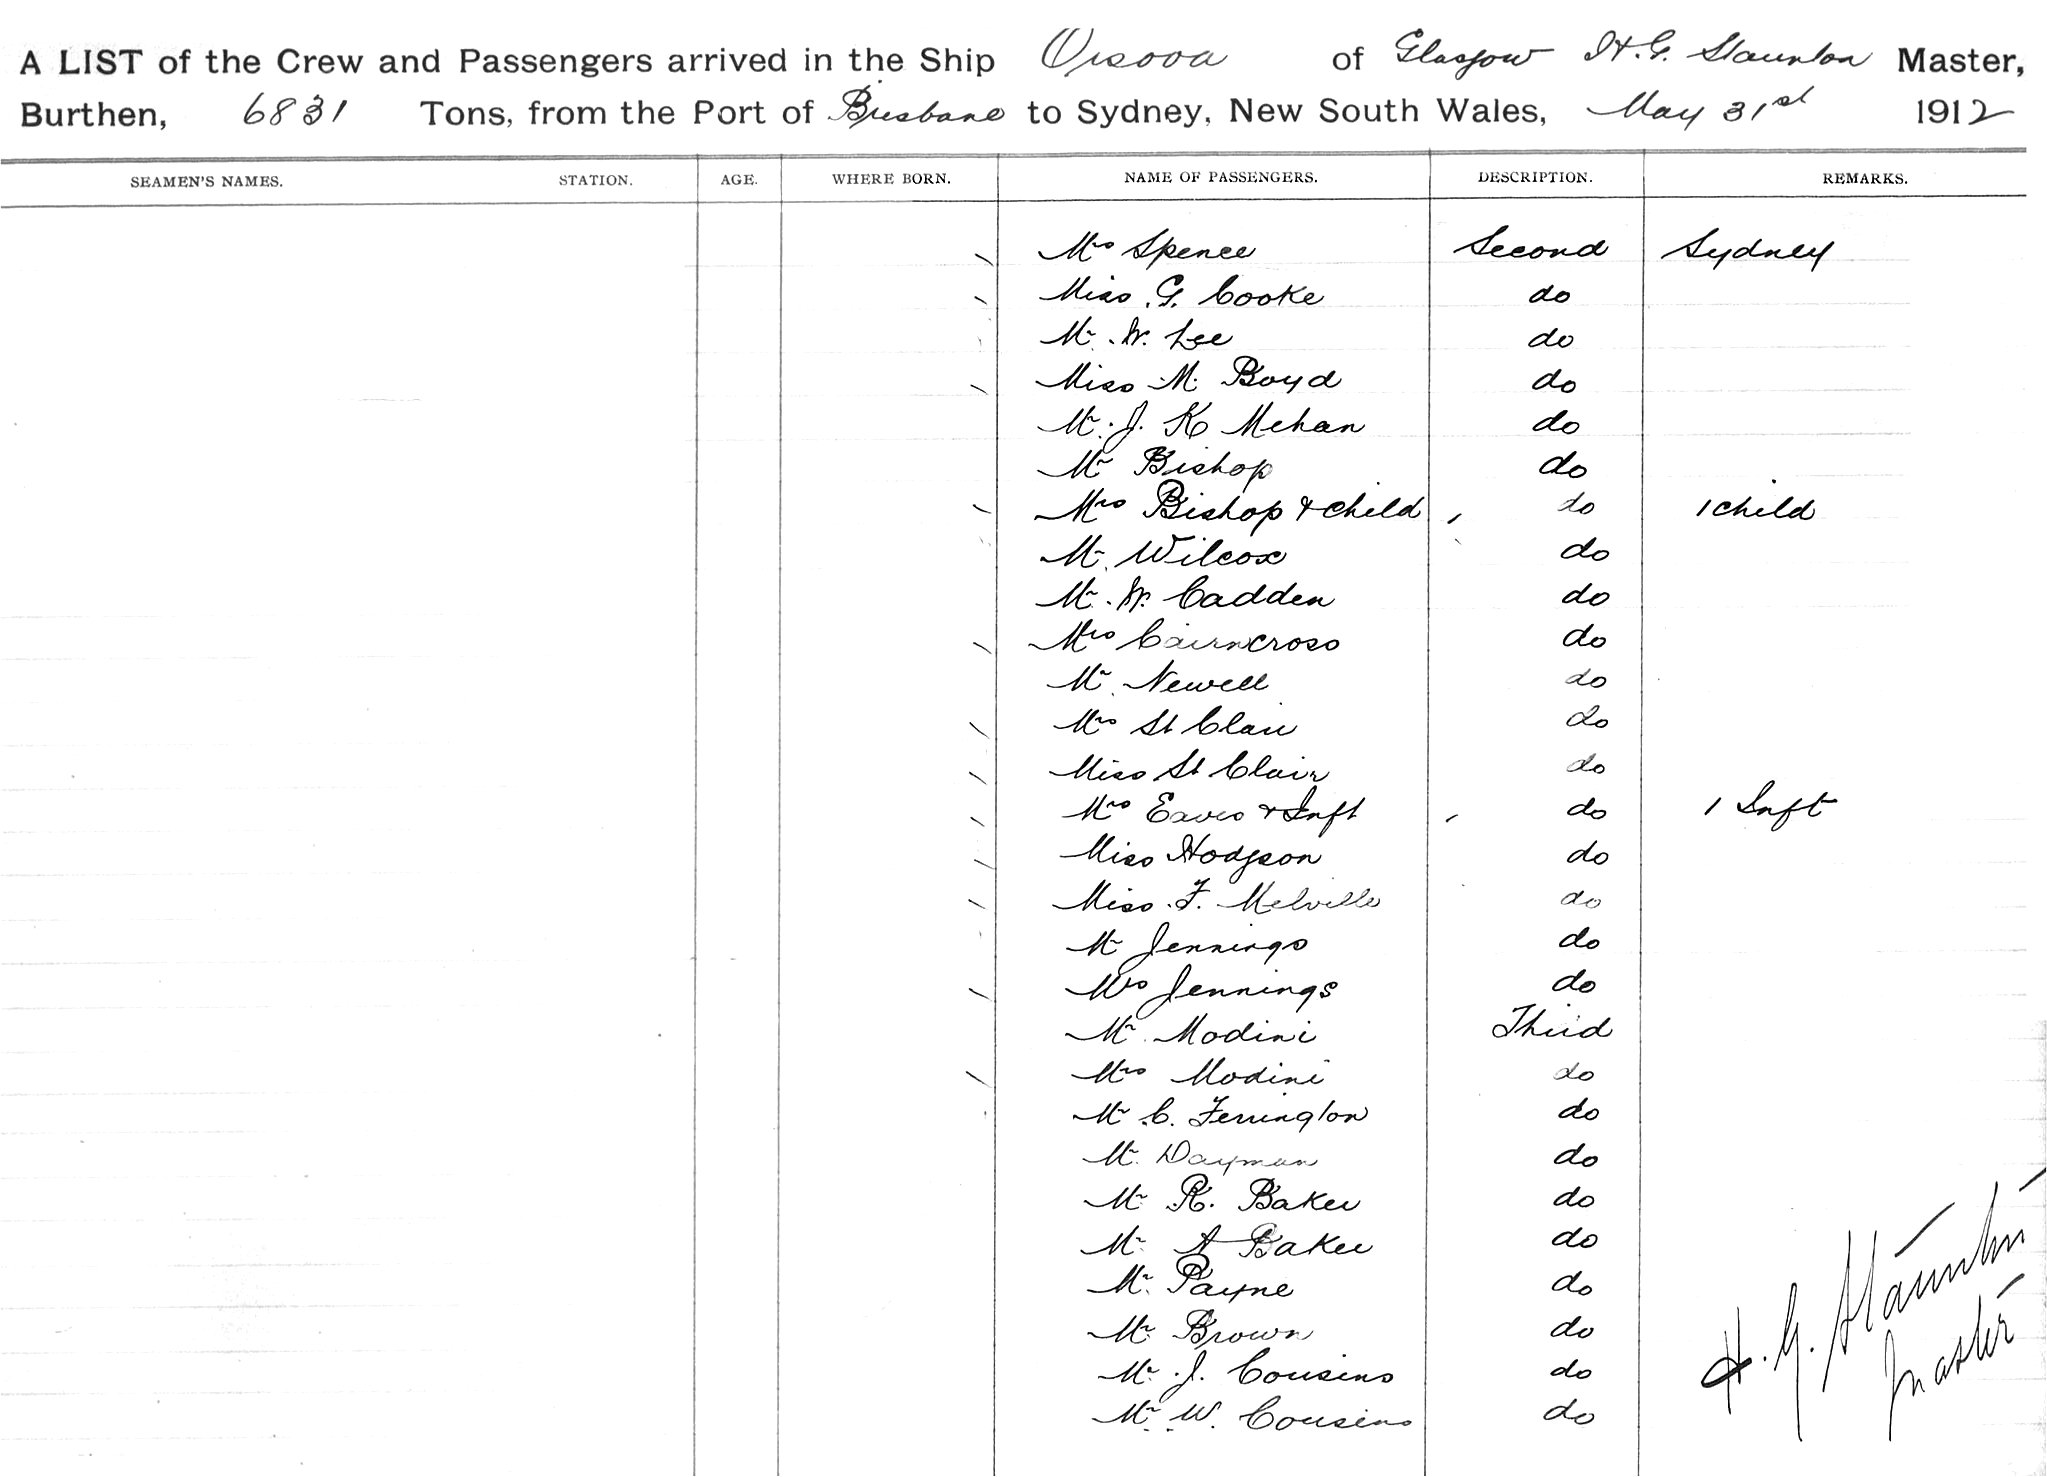 A LIST of the Crew and Passengers arrived in the Ship Orsova of Glasgow H. G. Staunton Master,
Burthen, 6831 Tons, from the Port of Brisbane to Sydney, New South Wales, May 31st 1912
SEAMEN'S NAMES. STATION. AGE. WHERE BORN. NAME OF PASSENGERS. DESCRIPTION. REMARKS.
Mrs Spence Second Sydney
Miss G. Cooke do
Mr. W. Lee do
Miss M. Boyd do
Mr. J. K Mehan do
Mr Bishop do
Mrs Bishop & child do 1 child
Mr. Wilcox do
Mr. W. Cadden do
Mrs Cairncross do
Mr. Newell do
Mrs St Clair do
Miss St Clair do
Mrs Eaves & Inft do 1 Inft
Miss Hodgson do
Miss. F. Melville do
Mr Jennings do
Mrs Jennings do
Mr. Modini Third
Mrs Modini do
Mr C. Ferrington do
Mr. Dayman do
Mr R. Baker do
Mr A Baker do
Mr. Payne do
Mr. Brown do
Mr. J. Cousins do
Mr. W. Cousins do
H. G. Staunton
Master